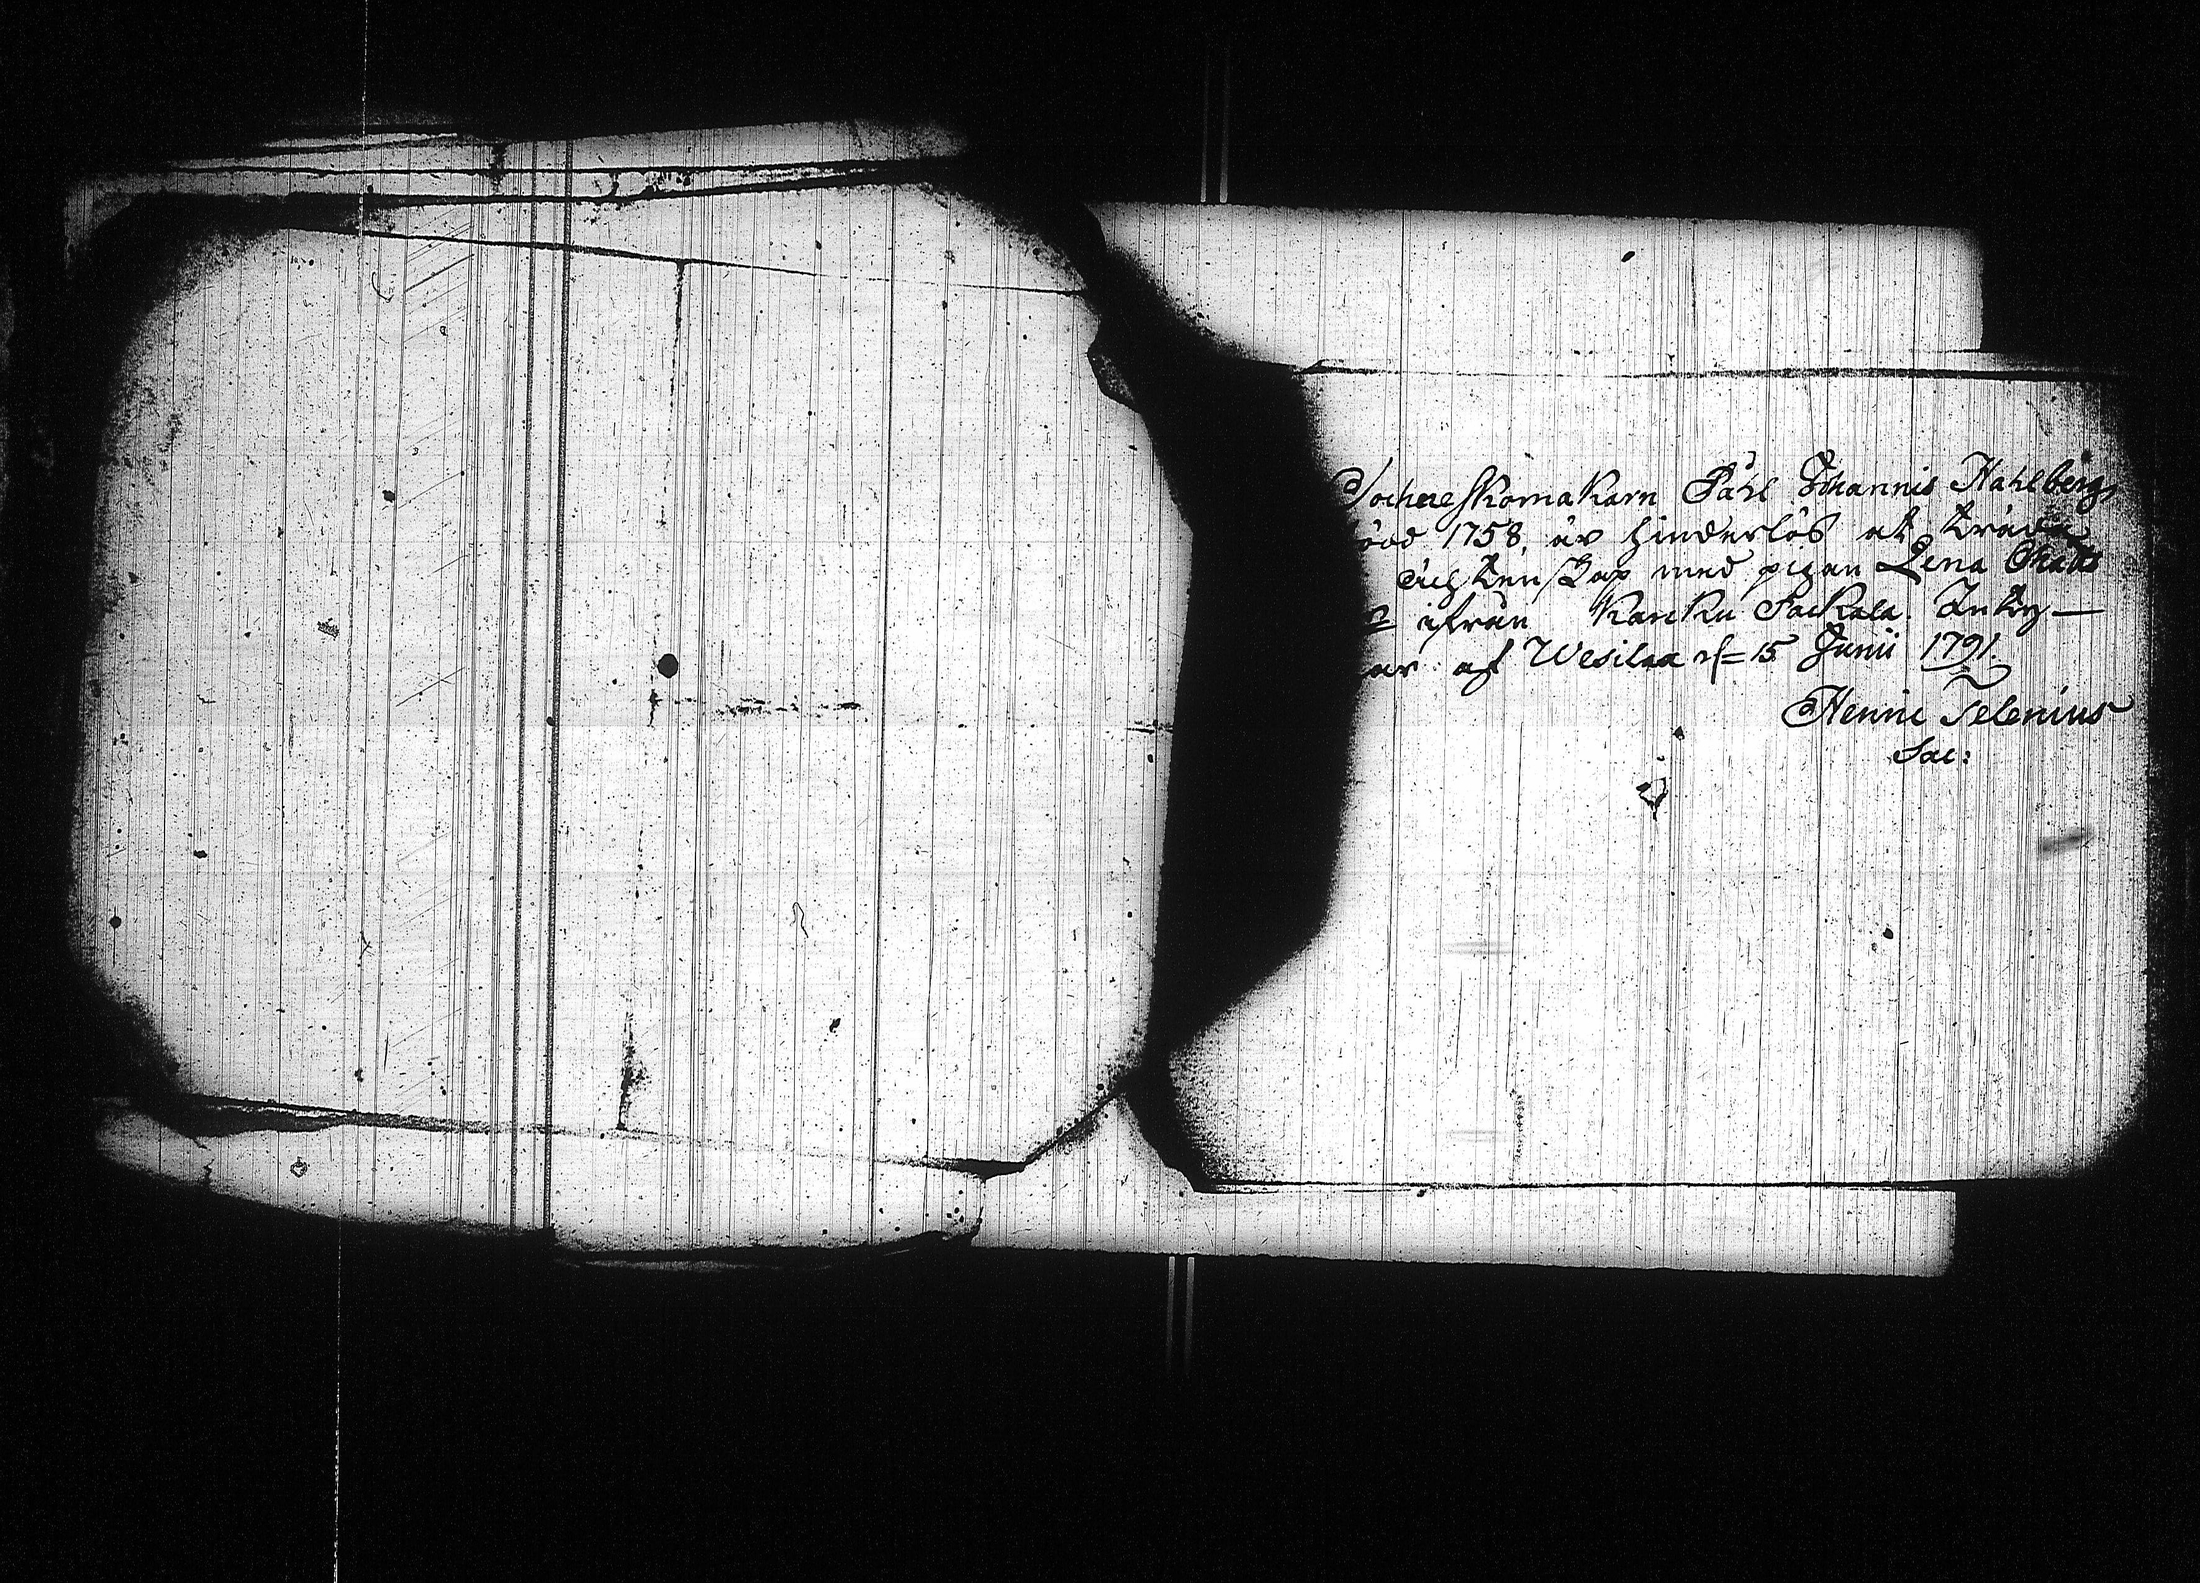 Sochneskomakarn Påhl Johannis Kahlberg
född 1758, är hinderlös at träda
ächtenskap med pigan Lena Matts
ifrån Karcku Packala. Intÿ-
ar af Wesilax d= 15 Junii 1791.
Henric Telenius
Sac: